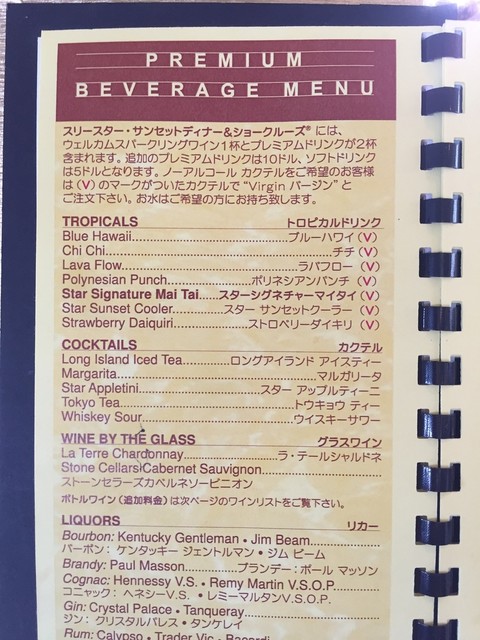 PREMIUM
BEVERAGE MENU
スリースター・サンセットディナー&ショークルーズ® には、
ウェルカムスパークリングワイン1杯とプレミアムドリンクが2杯
含まれます。追加のプレミアムドリンクは10ドル、ソフトドリンク
は5ドルとなります。ノーアルコール カクテルをご希望のお客様
は (V) のマークがついたカクテルで "Virgin バージン" と
ご注文下さい。お水はご希望の方にお持ち致します。
TROPICALS トロピカルドリンク
Blue Hawaii......ブルーハワイ (V)
Chi Chi......チチ (V)
Lava Flow......ラバフロー (V)
Polynesian Punch......ポリネシアンパンチ (V)
Star Signature Mai Tai......スターシグネチャーマイタイ (V)
Star Sunset Cooler......スター サンセットクーラー (V)
Strawberry Daiquiri......ストロベリーダイキリ (V)
COCKTAILS カクテル
Long Island Iced Tea......ロングアイランド アイスティー
Margarita......マルガリータ
Star Appletini......スター アップルティーニ
Tokyo Tea......トウキョウ ティー
Whiskey Sour......ウイスキーサワー
WINE BY THE GLASS グラスワイン
La Terre Chardonnay......ラ・テールシャルドネ
Stone Cellars Cabernet Sauvignon......
ストーンセラーズカベルネソービニオン
ボトルワイン (追加料金) は次ページのワインリストをご覧下さい。
LIQUORS リカー
Bourbon: Kentucky Gentleman • Jim Beam......
バーボン： ケンタッキー ジェントルマン • ジム ビーム
Brandy: Paul Masson......ブランデー： ポール マッソン
Cognac: Hennessy V.S. • Remy Martin V.S.O.P......
コニャック： ヘネシーV.S. • レミーマルタンV.S.O.P.
Gin: Crystal Palace • Tanqueray......
ジン： クリスタルパレス • タンケレイ
Rum: Calypso • Trader Vic • Bacardi